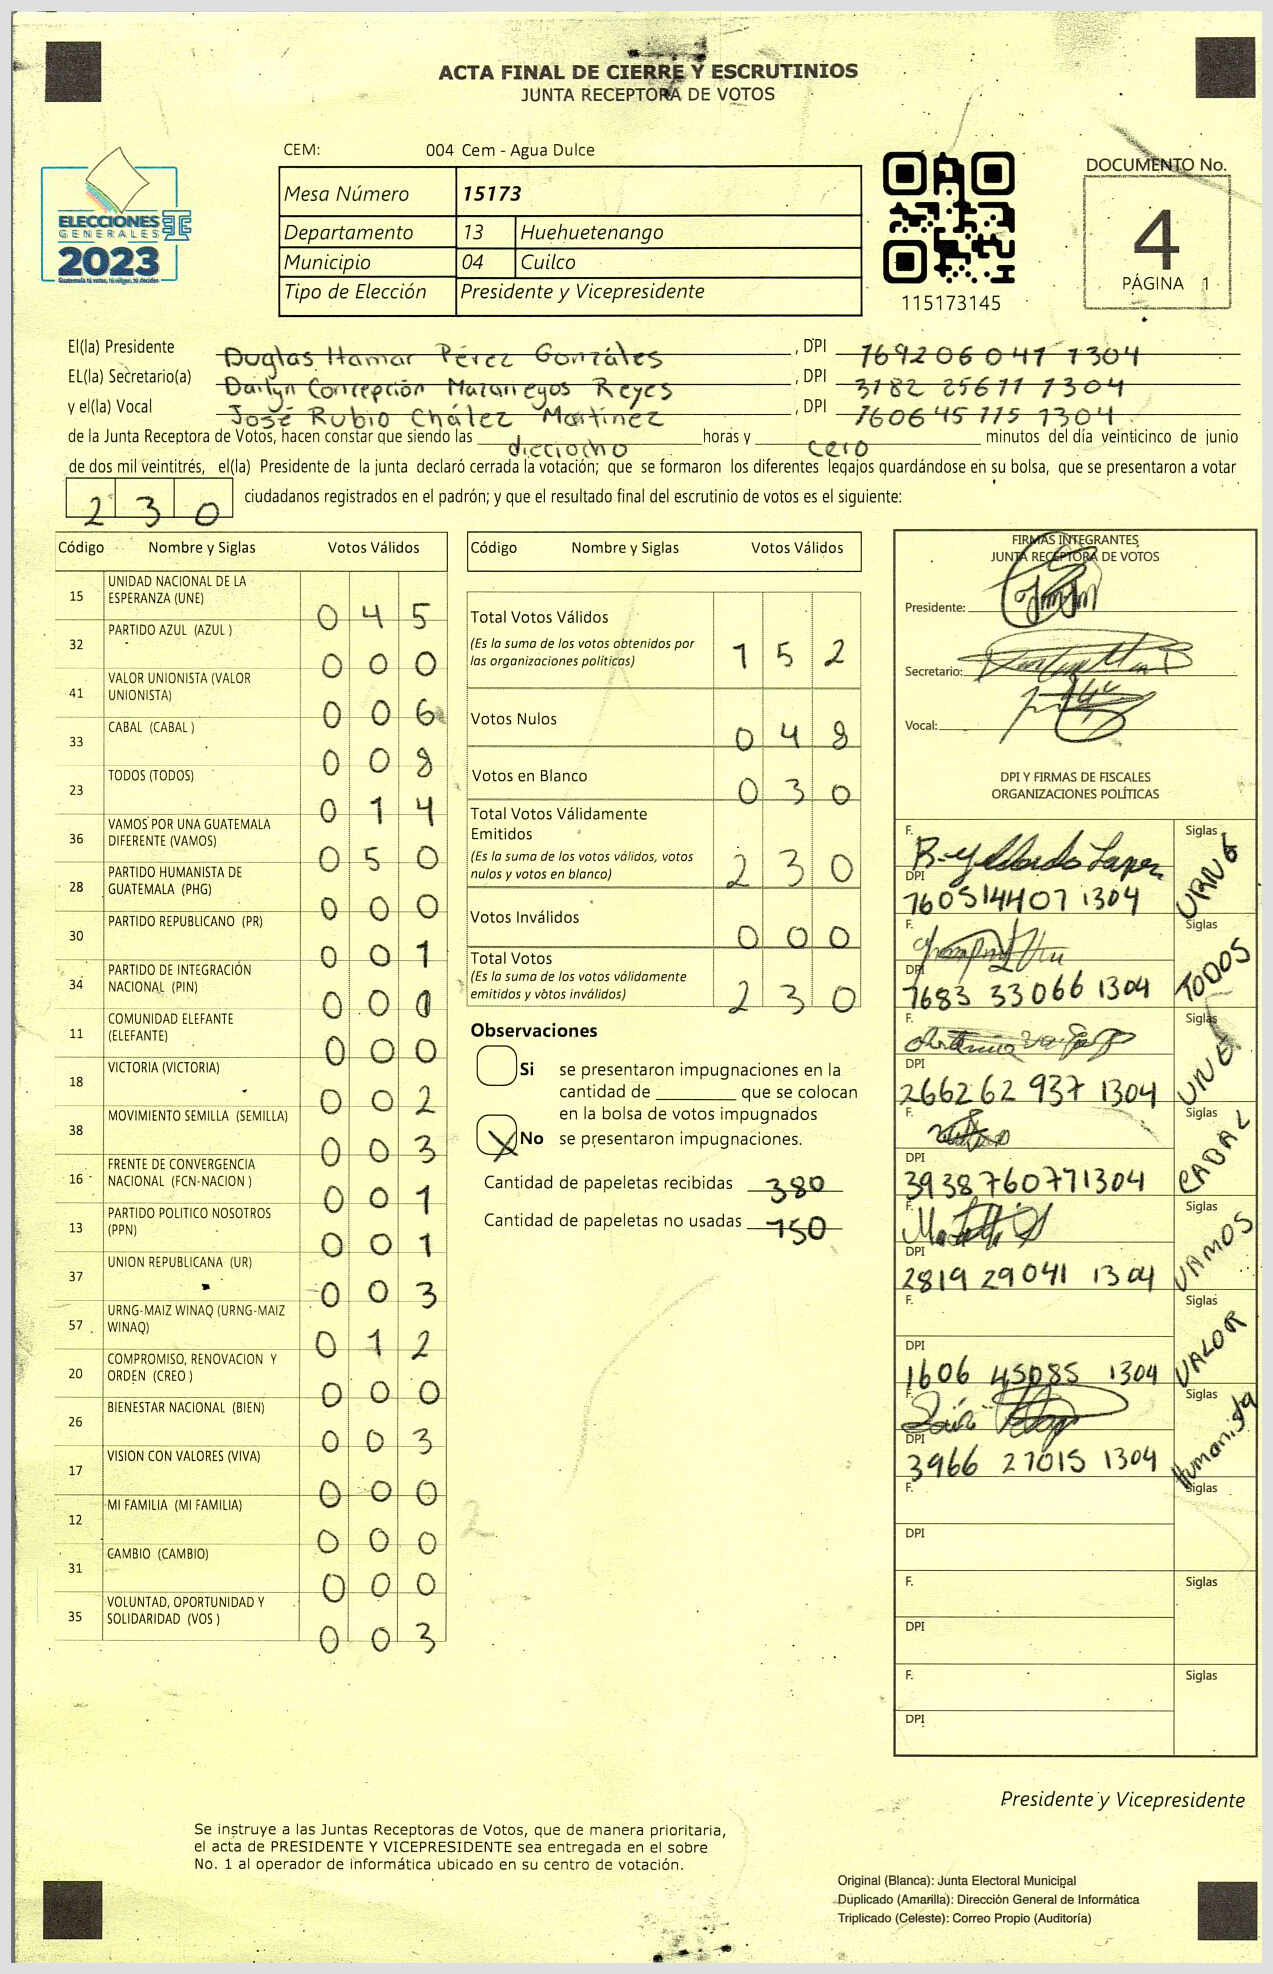 ACTA FINAL DE CIERRE Y ESCRUTINIOS
JUNTA RECEPTORA DE VOTOS
CEM: 004 Cem - Agua Dulce
Mesa Número 15173
Departamento 13 Huehuetenango
Municipio 04 Cuilco
Tipo de Elección Presidente y Vicepresidente
ELECCIONES
GENERALES
2023
Guatemala tú votas, tú eliges, tú decides
115173145
DOCUMENTO No.
4
PÁGINA 1
El(la) Presidente Duglas Hamar Pérez Gonzáles, DPI 769206041 1304
EL(la) Secretario(a) Dailyn Concepción Mazariegos Reyes, DPI 3182 25611 1304
y el(la) Vocal José Rubio Chález Martínez, DPI 160645115 1304
de la Junta Receptora de Votos, hacen constar que siendo las dieciocho horas y cero minutos del día veinticinco de junio
de dos mil veintitrés, el(la) Presidente de la junta declaró cerrada la votación; que se formaron los diferentes legajos quardándose en su bolsa, que se presentaron a votar
230 ciudadanos registrados en el padrón; y que el resultado final del escrutinio de votos es el siguiente:
Código Nombre y Siglas Votos Válidos
15 UNIDAD NACIONAL DE LA ESPERANZA (UNE) 045
32 PARTIDO AZUL (AZUL ) 000
41 VALOR UNIONISTA (VALOR UNIONISTA) 006
33 CABAL (CABAL ) 008
23 TODOS (TODOS) 014
36 VAMOS POR UNA GUATEMALA DIFERENTE (VAMOS) 050
28 PARTIDO HUMANISTA DE GUATEMALA (PHG) 000
30 PARTIDO REPUBLICANO (PR) 001
34 PARTIDO DE INTEGRACIÓN NACIONAL (PIN) 000
11 COMUNIDAD ELEFANTE (ELEFANTE) 000
18 VICTORIA (VICTORIA) 002
38 MOVIMIENTO SEMILLA (SEMILLA) 003
16 FRENTE DE CONVERGENCIA NACIONAL (FCN-NACION ) 001
13 PARTIDO POLITICO NOSOTROS (PPN) 001
37 UNION REPUBLICANA (UR) 003
57 URNG-MAIZ WINAQ (URNG-MAIZ WINAQ) 012
20 COMPROMISO, RENOVACION Y ORDEN (CREO ) 000
26 BIENESTAR NACIONAL (BIEN) 003
17 VISION CON VALORES (VIVA) 000
12 MI FAMILIA (MI FAMILIA) 000
31 CAMBIO (CAMBIO) 000
35 VOLUNTAD, OPORTUNIDAD Y SOLIDARIDAD (VOS ) 003
Código Nombre y Siglas Votos Válidos
Total Votos Válidos 152
(Es la suma de los votos obtenidos por
las organizaciones políticas)
Votos Nulos 048
Votos en Blanco 030
Total Votos Válidamente
Emitidos 230
(Es la suma de los votos válidos, votos
nulos y votos en blanco)
Votos Inválidos 000
Total Votos 230
(Es la suma de los votos válidamente
emitidos y votos inválidos)
Observaciones
Si se presentaron impugnaciones en la
cantidad de ________ que se colocan
en la bolsa de votos impugnados
X No se presentaron impugnaciones.
Cantidad de papeletas recibidas 380
Cantidad de papeletas no usadas 150
FIRMAS INTEGRANTES
JUNTA RECEPTORA DE VOTOS
Presidente:
Secretario:
Vocal:
DPI Y FIRMAS DE FISCALES
ORGANIZACIONES POLÍTICAS
F. Siglas URNG
DPI 160514407 1304
F. Siglas TODOS
DPI 1683 33066 1304
F. Siglas UNE
DPI 266262 937 1304
F. Siglas CABAL
DPI 3938760771304
F. Siglas VAMOS
DPI 2819 29041 1304
F. Siglas VALOR
DPI 1606 45085 1304
F. Siglas Humanista
DPI 3966 27015 1304
F. Siglas
DPI
F. Siglas
DPI
F. Siglas
DPI
Presidente y Vicepresidente
Se instruye a las Juntas Receptoras de Votos, que de manera prioritaria,
el acta de PRESIDENTE Y VICEPRESIDENTE sea entregada en el sobre
No. 1 al operador de informática ubicado en su centro de votación.
Original (Blanca): Junta Electoral Municipal
Duplicado (Amarilla): Dirección General de Informática
Triplicado (Celeste): Correo Propio (Auditoría)